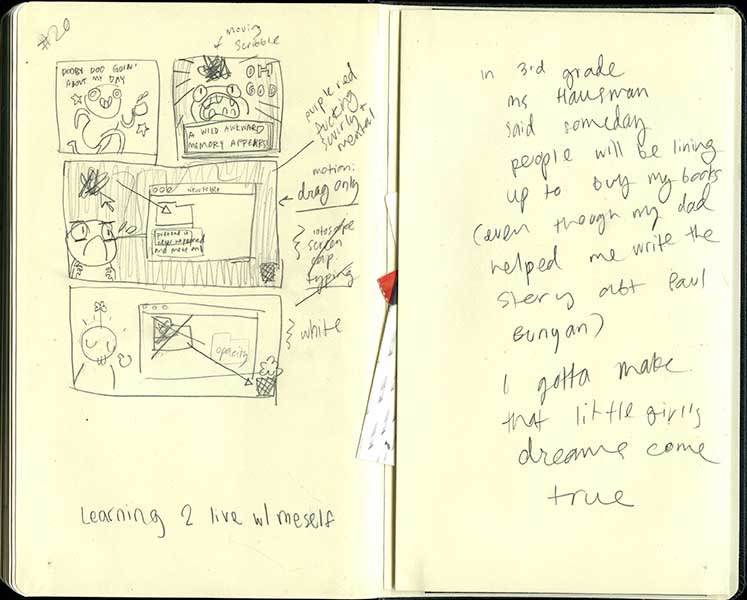 #20
moving
scribble
DOOBY DOO GOIN'
ABOUT MY DAY
OH
GOD
A WILD AWKWARD
MEMORY APPEARS
purple red
fucking
swirly +
mental
motion:
drag only
new folder
pretend it
never happened
and move on
rotoscope
screen
cap.
typing
white
opacity
Learning 2 live w/ meself
in 3rd grade
ms Hausman
said someday
people will be lining
up to buy my books
(even though my dad
helped me write the
story abt Paul
Bunyan)
I gotta make
that little girl's
dreams come
true